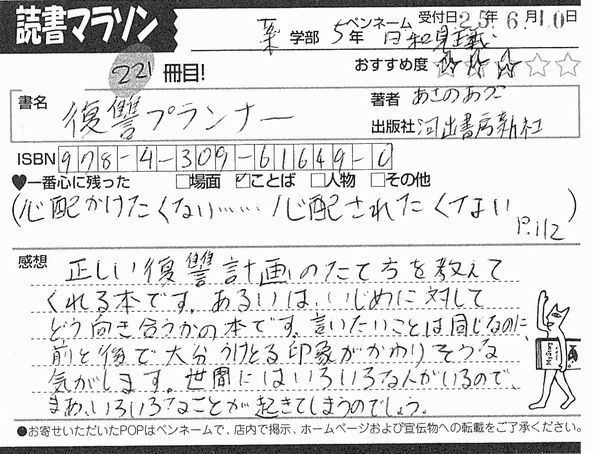 読書マラソン
薬 学部 5年 ペンネーム 日和見主義 受付日 25年 6月10日
221 冊目!
おすすめ度 ★★★☆☆
書名 復讐プランナー
著者 あさのあつこ
出版社 河出書房新社
ISBN 978-4-309-61649-0
♥一番心に残った □場面 ☑ことば □人物 □その他
(心配かけたくない……心配されたくない P.112)
感想 正しい復讐計画のたて方を教えて
くれる本です。あるいは、いじめに対して
どう向き合うかの本です。言いたいことは同じなのに、
前と後で大分うけとる印象がかわりそうな
気がします。世間にはいろいろな人がいるので、
まあ、いろいろなことが起きてしまうのでしょう。
●お寄せいただいたPOPはペンネームで、店内で掲示、ホームページおよび宣伝物への転載をご了承ください。